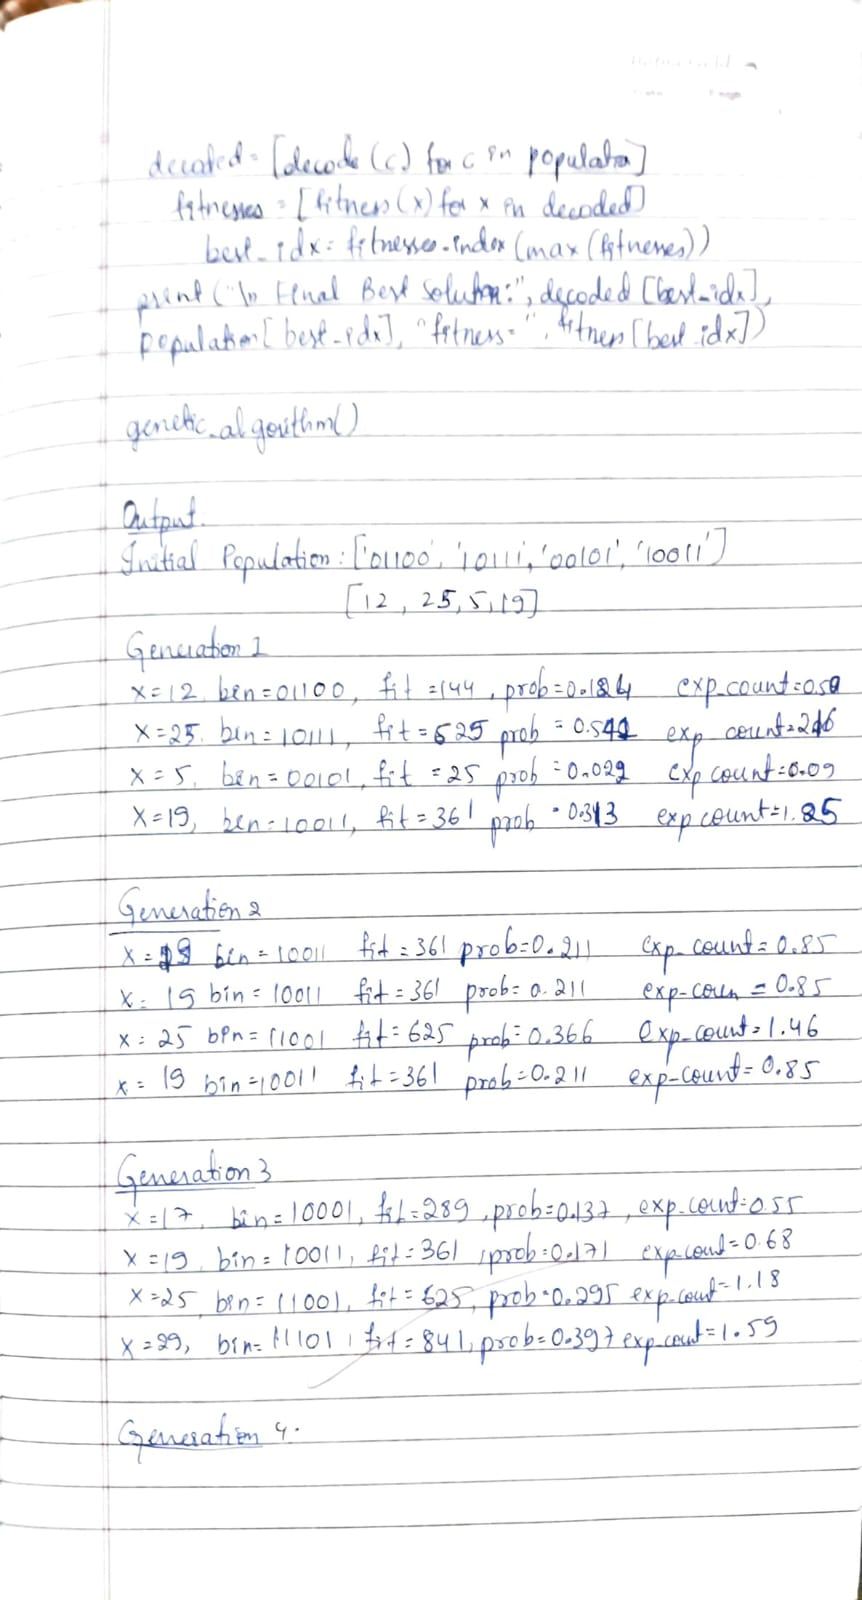 decoded = [decode (c) for c in population]
fitnesses = [fitness (x) for x in decoded]
best_idx = fitnesses.index (max (fitnesses))
print ("\n Final Best Solution:", decoded [best_idx],
population [best_idx], "fitness=", fitness [best_idx])
genetic_algorithm()
Output.
Initial Population : ['01100', '10111', '00101', '10011']
[12, 25, 5, 19]
Generation 1
x=12, bin=01100, fit=144, prob=0.124 exp_count=0.50
x=25, bin=10111, fit=625 prob=0.541 exp count=2.16
x=5, bin=00101, fit=25 prob=0.029 exp count=0.09
x=19, bin=10011, fit=361 prob=0.313 exp count=1.25
Generation 2
x=19 bin=10011 fit=361 prob=0.211 exp_count=0.85
x=19 bin=10011 fit=361 prob=0.211 exp-coun=0.85
x=25 bin=11001 fit=625 prob=0.366 exp-count=1.46
x=19 bin=10011 fit=361 prob=0.211 exp-count=0.85
Generation 3
x=17, bin=10001, fit=289, prob=0.137, exp-count=0.55
x=19, bin=10011, fit=361, prob=0.171 exp-count=0.68
x=25, bin=11001, fit=625, prob=0.295 exp-count=1.18
x=29, bin=11101, fit=841, prob=0.397 exp-count=1.59
Generation 4.